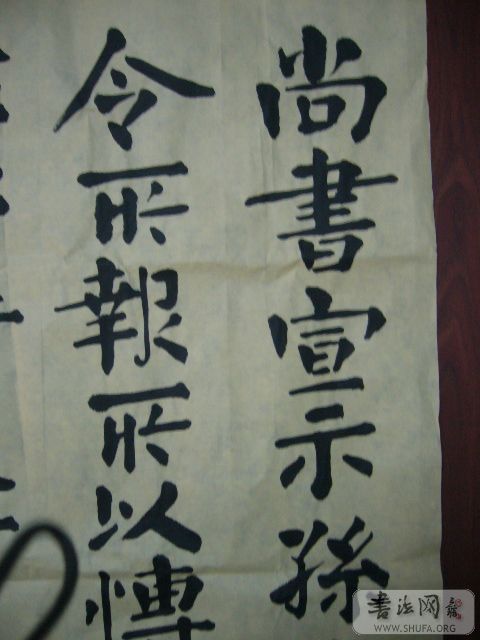 尚書宣示孫
令所報所以博
書法网
WWW.SHUFA.ORG